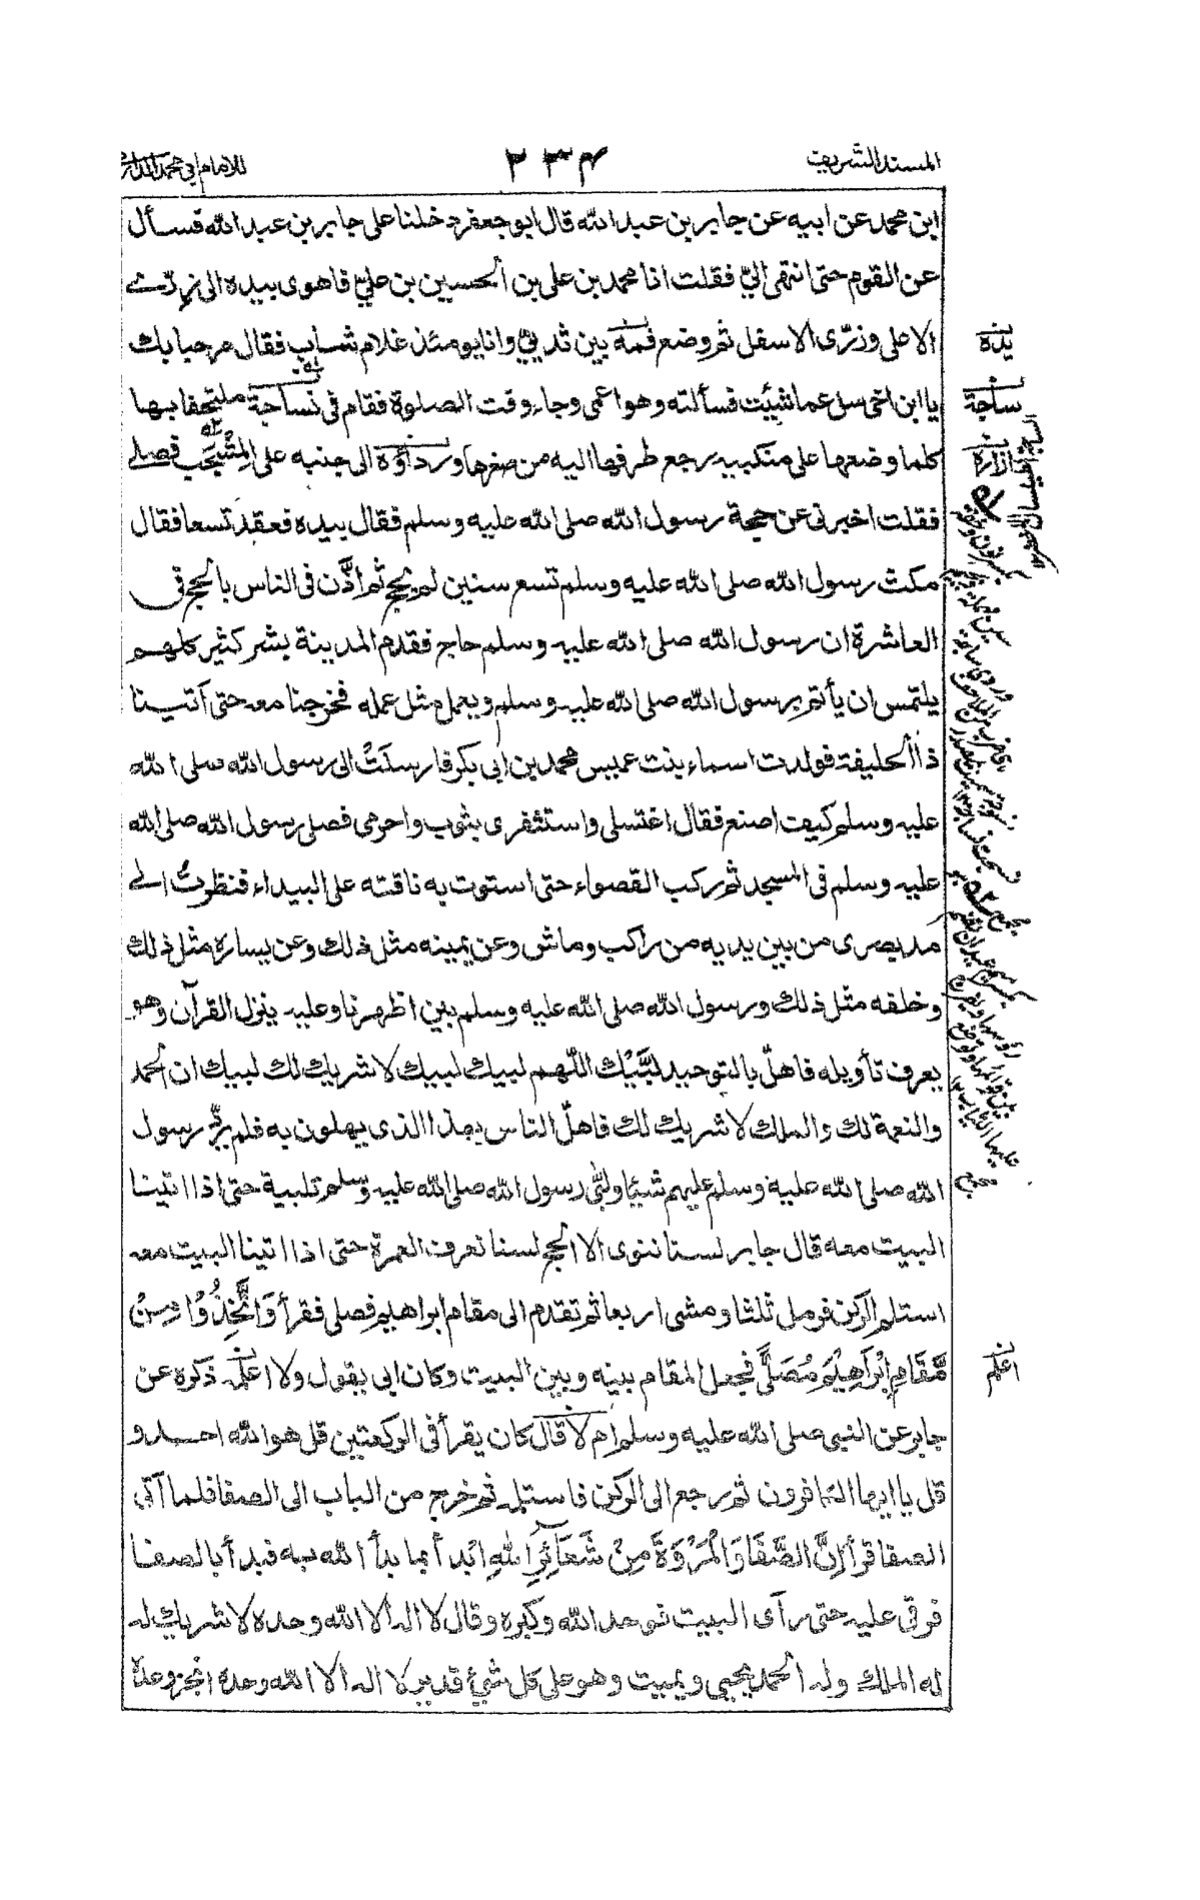 المسند الشريف
٢٣٤
للامام ابي محمد الدارمي
ابن محمد عن ابيه عن جابر بن عبد الله قال ابو جعفر دخلنا على جابر بن عبد الله فسأل
عن القوم حتى انتهى اليّ فقلت انا محمد بن على بن الحسين بن عليّ فاهوى بيده الى زرّي
الاعلى وزرّى الاسفل ثم وضع فمه بين ثدييّ وانا يومئذ غلام شاب فقال مرحبا بك
يا ابن اخى سل عما شئت فسألته وهو اعمى وجاء وقت الصلوة فقام فى نساجة ملتحفا بها
كلما وضعها على منكبيه رجع طرفها اليه من صغرها ورداؤه الى جنبه على المشجب فصلى
فقلت اخبرنى عن حجة رسول الله صلى الله عليه وسلم فقال بيده فعقد تسعا فقال
مكث رسول الله صلى الله عليه وسلم تسع سنين لم يحج ثم اذّن فى الناس بالحج فى
العاشرة ان رسول الله صلى الله عليه وسلم حاج فقدم المدينة بشر كثير كلهم
يلتمس ان يأتم برسول الله صلى الله عليه وسلم ويعمل مثل عمله فخرجنا معه حتى آتينا
ذا الحليفة فولدت اسماء بنت عميس محمد بن ابى بكر فارسلت الى رسول الله صلى الله
عليه وسلم كيف اصنع فقال اغتسلى واستثفرى بثوب واحرمى فصلى رسول الله صلى الله
عليه وسلم فى المسجد ثم ركب القصواء حتى استوت به ناقته على البيداء فنظرت الى
مد بصرى من بين يديه من راكب وماش وعن يمينه مثل ذلك وعن يساره مثل ذلك
وخلفه مثل ذلك ورسول الله صلى الله عليه وسلم بين اظهرنا وعليه ينزل القرآن وهو
يعرف تأويله فاهلّ بالتوحيد لبّيك اللهم لبيك لبيك لا شريك لك لبيك ان الحمد
والنعمة لك والملك لا شريك لك فاهلّ الناس بهذا الذى يهلون به فلم يردّ رسول
الله صلى الله عليه وسلم عليهم شيئا ولبّى رسول الله صلى الله عليه وسلم تلبية حتى اذا اتينا
البيت معه قال جابر لسنا ننوى الا الحج لسنا نعرف العمرة حتى اذا اتينا البيت معه
استلم الركن فرمل ثلثا ومشى اربعا ثم تقدم الى مقام ابراهيم فصلى فقرأ وَاتَّخِذُوْا مِنْ
مَّقَامِ اِبْرَاهِيْمَ مُصَلًّى فجعل المقام بينه وبين البيت وكان ابى يقول ولا اعلمه ذكره عن
جابر عن النبى صلى الله عليه وسلم ام لا قال كان يقرأ فى الركعتين قل هو الله احد و
قل يا ايها الكافرون ثم رجع الى الركن فاستلمه ثم خرج من الباب الى الصفا فلما آتى
الصفا قرأ اِنَّ الصَّفَا وَالْمَرْوَةَ مِنْ شَعَآئِرِ اللهِ ابدأ بما بدأ الله به فبدأ بالصفا
فرقى عليه حتى رآى البيت فوحد الله وكبره وقال لا اله الا الله وحده لا شريك له
له الملك وله الحمد يحيى ويميت وهو على كل شئ قدير لا اله الا الله وحده انجز وعده
يده
ساجة
ازاره
اعلم